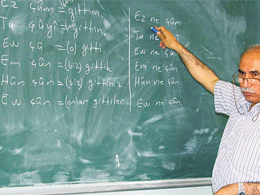 Ez çûm = gittim.
Tu çûyî = gittin
Ew çû = (o) gitti
Em çûn = (biz) gittik
Hûn çûn = (siz) gittik
Ew çûn = (onlar) gittiler
Ez ne çûm
Tu ne
Ew ne çû
Em ne çûn
Hûn ne çûn
Ew ne çûn